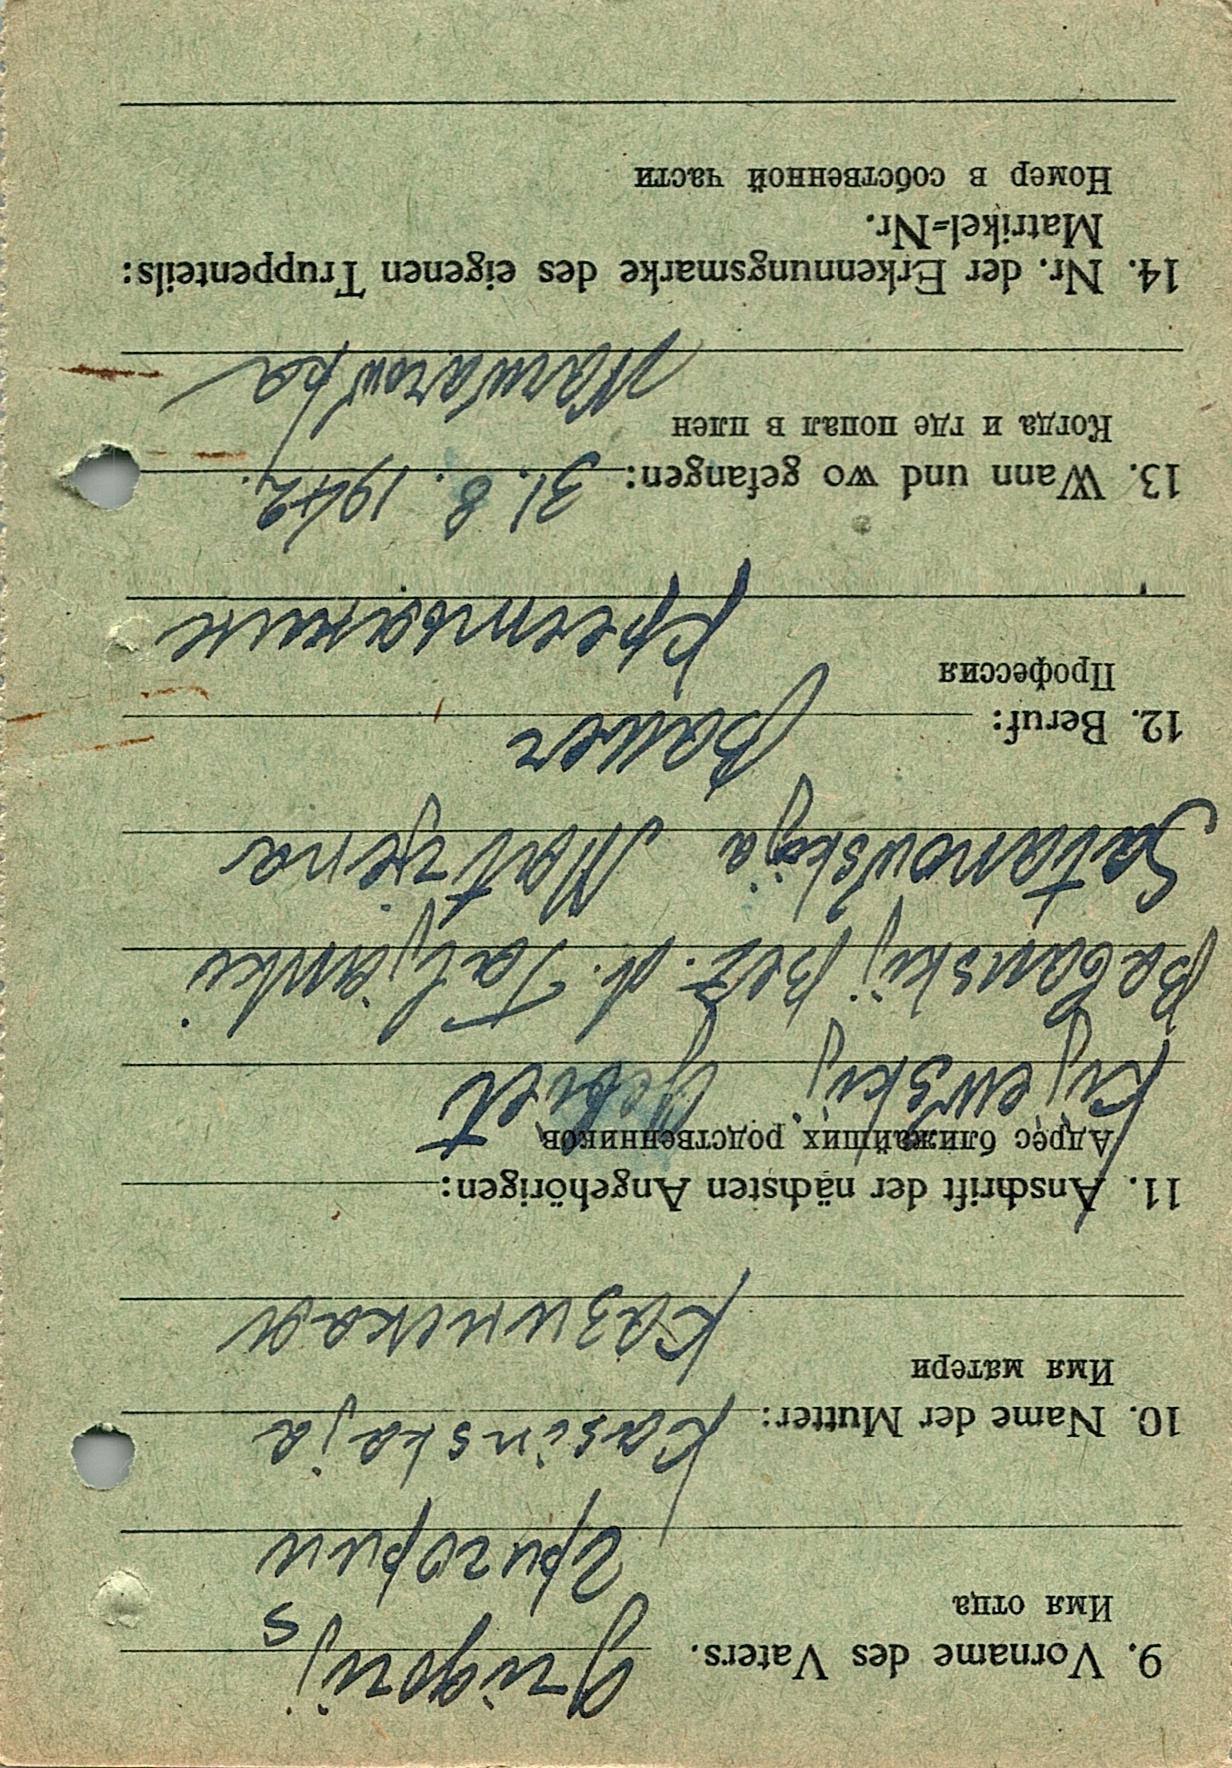 9. Vorname des Vaters. Grigorij
s
Имя отца
Григорий
10. Name der Mutter: Kasinskaja
Имя матери
Казинская
11. Anschrift der nächsten Angehörigen:
Адрес ближайших родственников
Kijewskij Gebiet
Babanskij Bez. d. Taljanki
Satanowskaja Motrjena
12. Beruf: Bauer
Профессия
Крестьянин
13. Wann und wo gefangen: 31. 8. 1942.
Когда и где попал в плен
14. Nr. der Erkennungsmarke des eigenen Truppenteils:
Matrikel=Nr.
Номер в собственной части